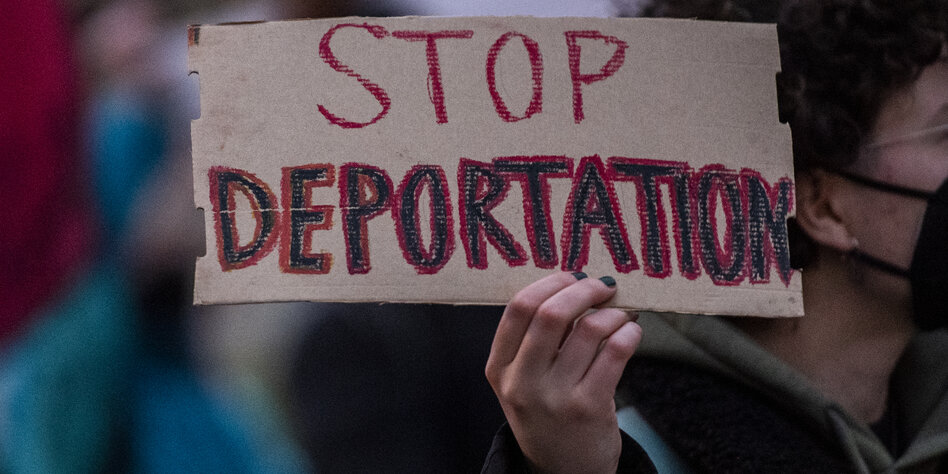 STOP
DEPORTATION